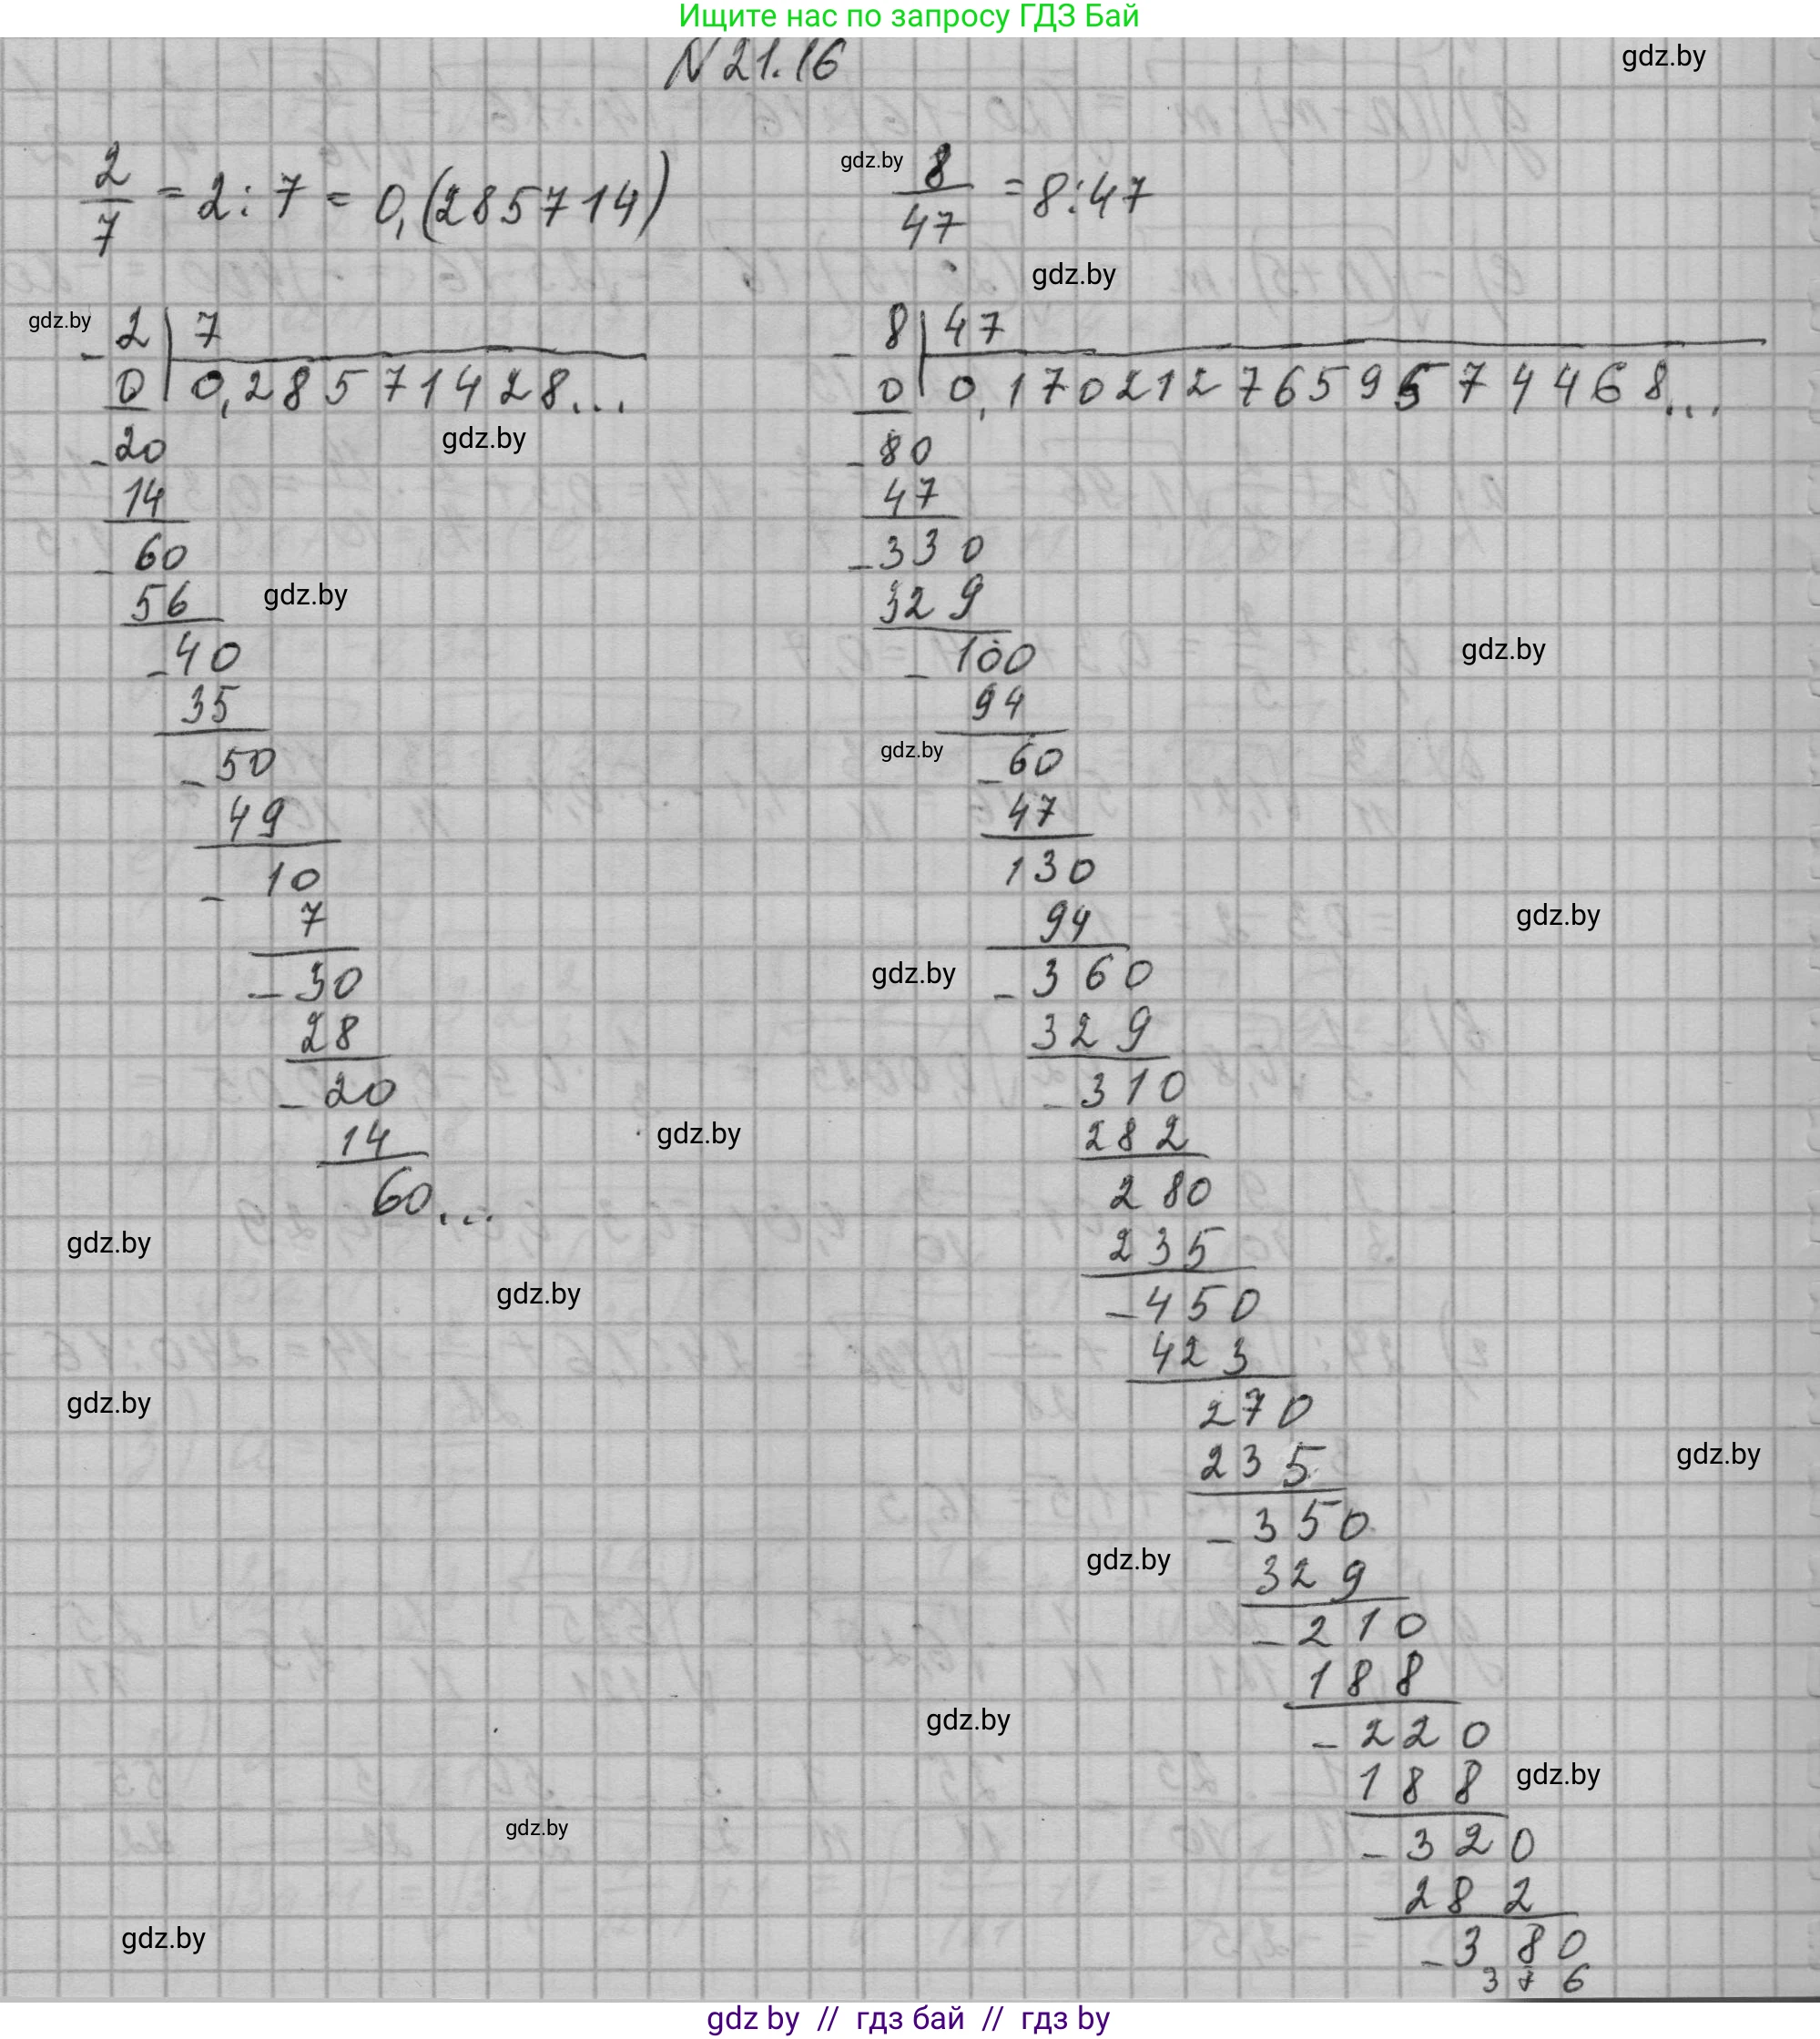 Ищите нас по запросу ГДЗ Бай
N 21.16
gdz.by
2/7 = 2 : 7 = 0,(285714)
gdz.by
8/47 = 8 : 47
gdz.by
gdz.by
- 2 | 7
0 | 0,28571428...
gdz.by
- 20
14
- 60
56
gdz.by
- 40
35
- 50
49
- 10
7
- 30
28
- 20
14
60...
gdz.by
gdz.by
gdz.by
gdz.by
gdz.by
gdz.by
- 8 | 47
0 | 0,17021276595744468...
- 80
47
- 330
329
- 100
94
gdz.by
gdz.by
- 60
47
130
94
gdz.by
gdz.by
- 360
329
- 310
282
280
235
- 450
423
270
235
gdz.by
- 350
329
gdz.by
- 210
188
gdz.by
- 220
188
gdz.by
- 320
282
- 380
376
gdz by // гдз бай // гдз by